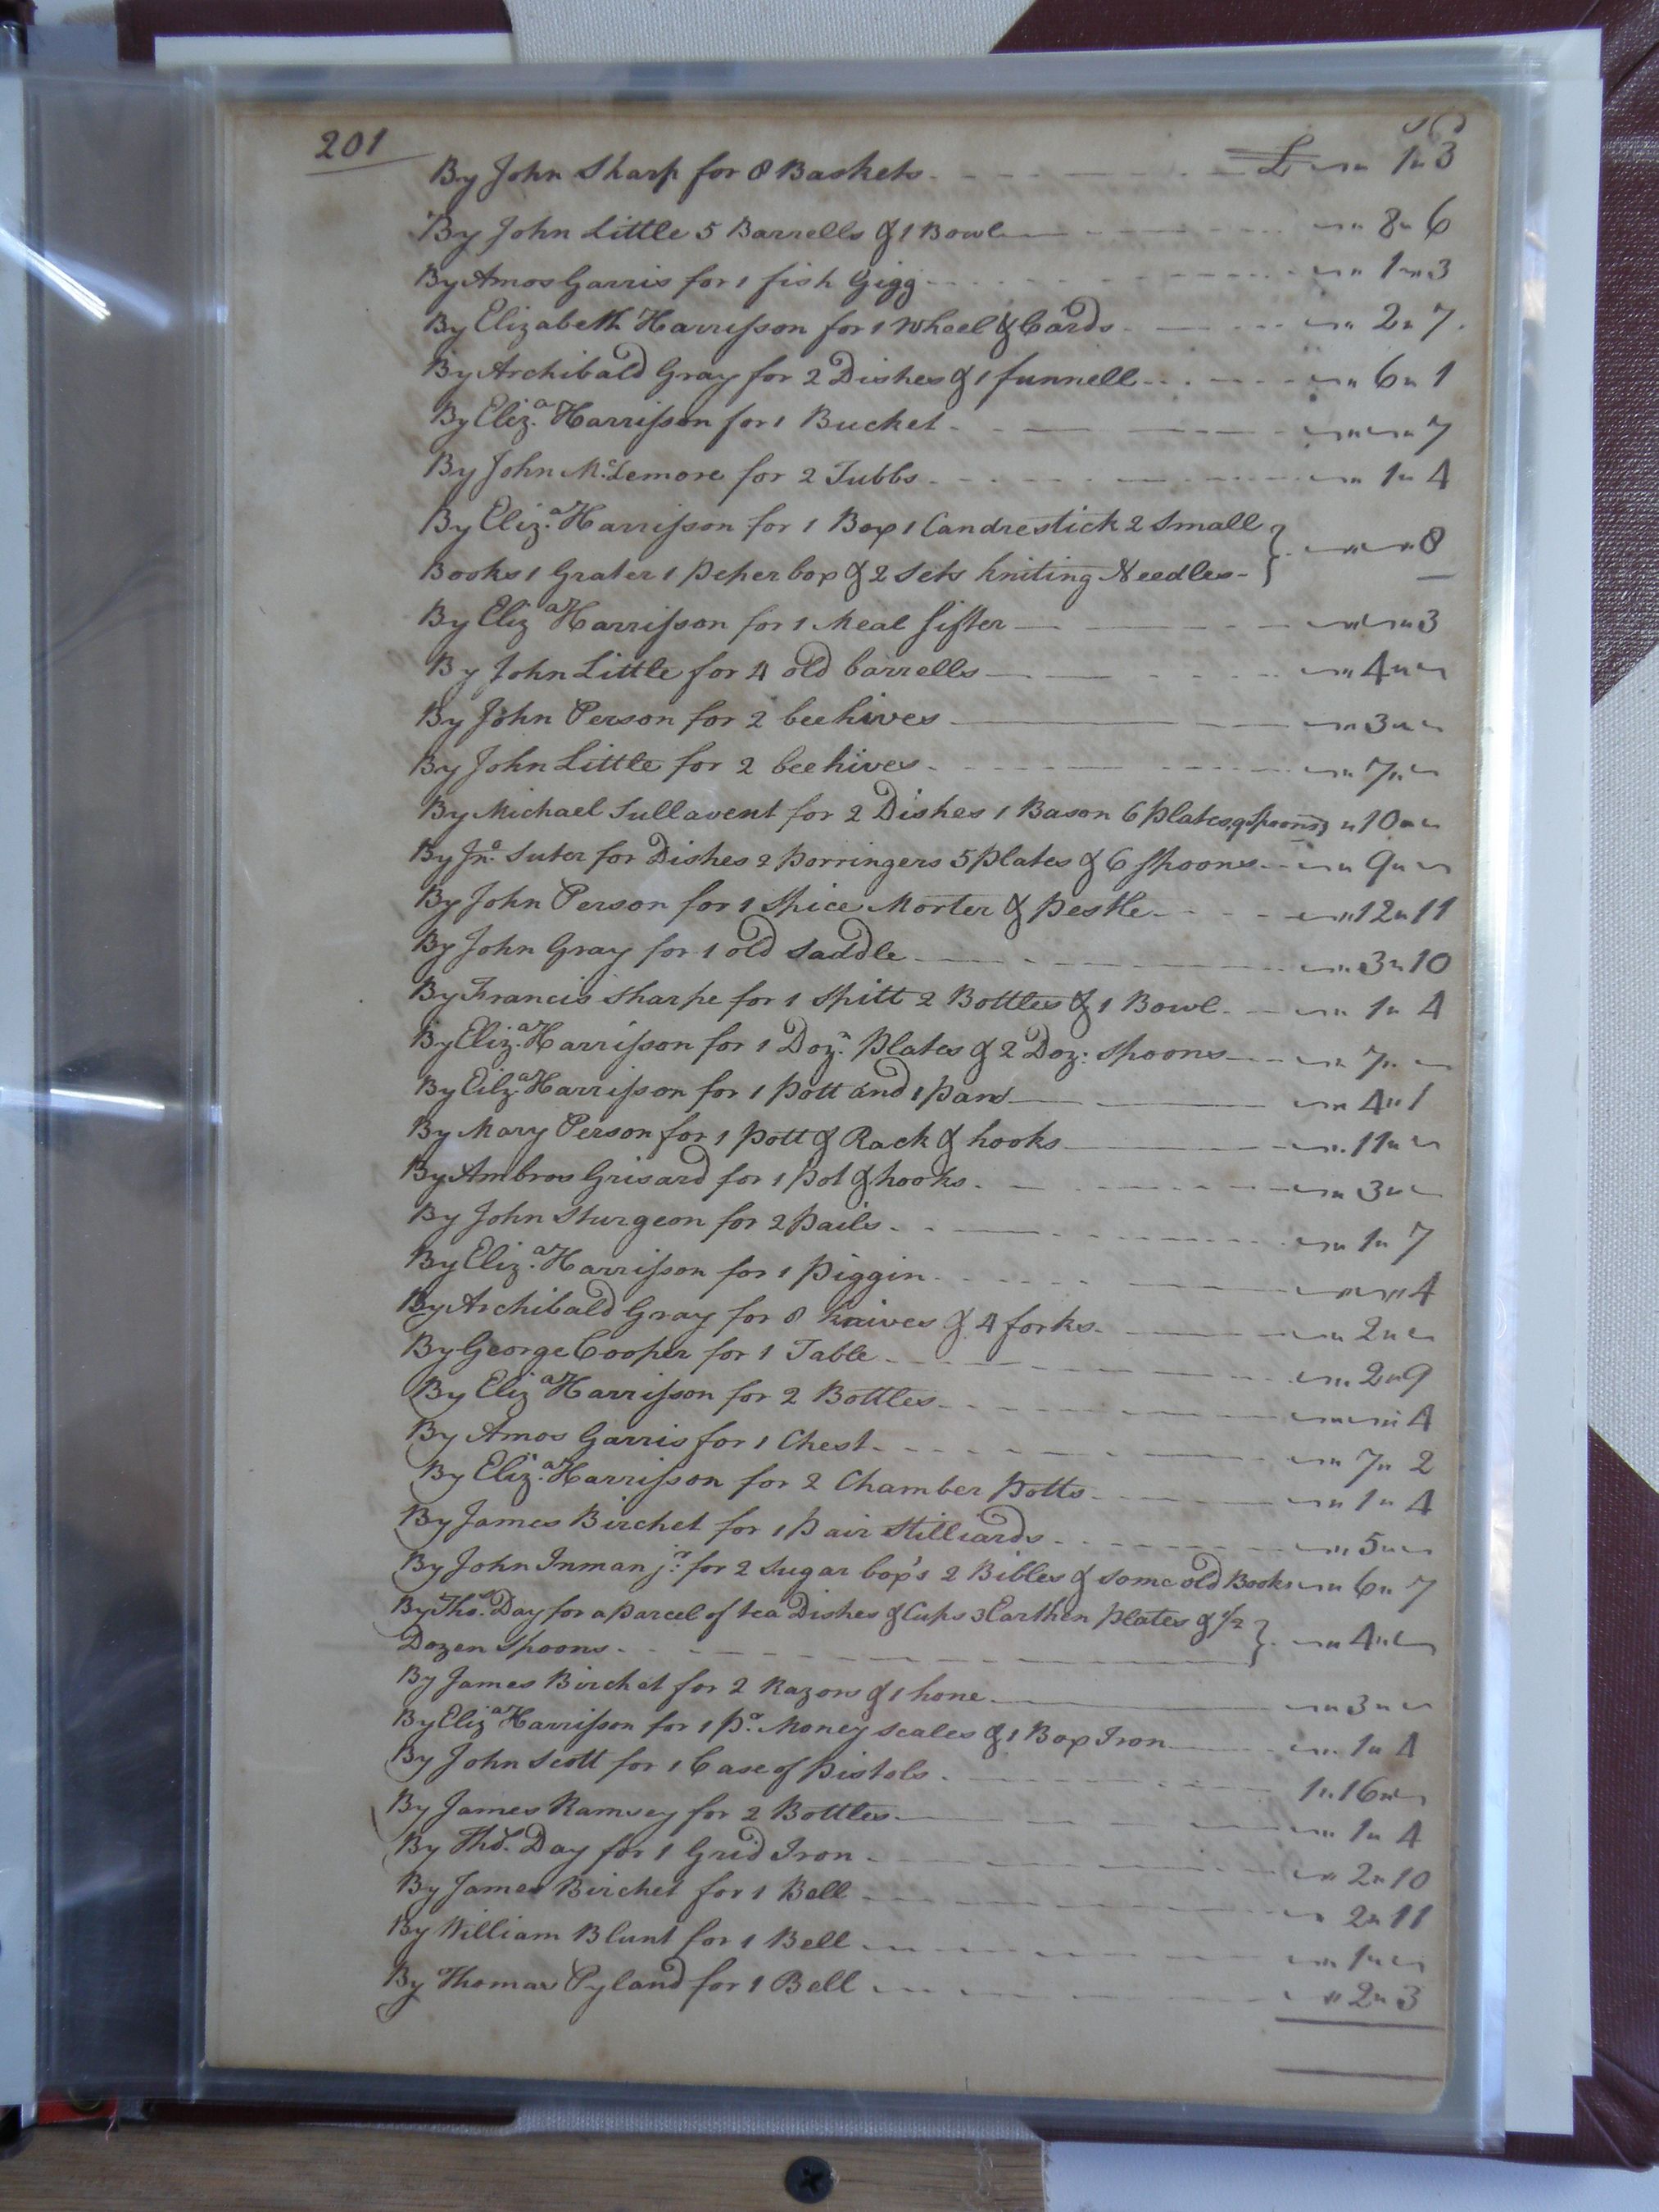 201
s d
By John Sharp for 8 Baskets £ " 1 " 3
By John Little 5 Barrells & 1 Bowl " 8 " 6
By Amos Garris for 1 fish Gigg " 1 " 3
By Elizabeth Harrisson for 1 Wheel & Cards " 2 " 7
By Archibald Gray for 2 Dishes & 1 funnell " 6 " 1
By Eliz.a Harrisson for 1 Bucket " " 7
By John Mc.Lemore for 2 Tubbs " 1 " 4
By Eliz.a Harrisson for 1 Box 1 Candrestick 2 Small
Books 1 Grater 1 peper box & 2 Sets kniting Needles " " 8
By Eliza Harrisson for 1 Meal Sifter " " 3
By John Little for 4 old barrells " 4 "
By John Person for 2 beehives " 3 "
By John Little for 2 beehives " 7 "
By Michael Sullavent for 2 Dishes 1 Bason 6 plates, 9 Spoons " 10 "
By Jno. Suter for Dishes 2 porringers 5 plates & 6 Spoons " 9 "
By John Person for 1 Spice Morter & pestle " 12 " 11
By John Gray for 1 old Saddle " 3 " 10
By Francis Sharpe for 1 Spitt 2 Bottles & 1 Bowl " 1 " 4
By Eliz.a Harrisson for 1 Doz.n plates & 2 Doz: Spoons " 7 "
By Eilz.a Harrisson for 1 pott and 1 pan " 4 " 1
By Mary Person for 1 pott & Rack & hooks " 11 "
By Ambros Grisard for 1 pot & hooks " 3 "
By John Sturgeon for 2 pails " 1 " 7
By Eliz.a Harrisson for 1 piggin " " 4
By Archibald Gray for 8 knives & 4 forks " 2 "
By George Cooper for 1 Table " 2 " 9
By Eliza Harrisson for 2 Bottles " " 4
By Amos Garris for 1 Chest " 7 " 2
By Eliz.a Harrisson for 2 Chamber potts " 1 " 4
By James Birchet for 1 pair Stilliards " 5 "
By John Inman jr. for 2 Sugar box's 2 Bibles & some old Books " 6 " 7
By Thos. Day for a parcel of tea Dishes & Cups 3 Earthen plates & 1/2
Dozen Spoons " 4 "
By James Birchet for 2 Razors & 1 hone " 3 "
By Eliza Harrisson for 1 pr. Money scales & 1 Box Iron " 1 " 4
By John Scott for 1 Case of pistols 1 " 16 "
By James Ramsey for 2 Bottles " 1 " 4
By Thos. Day for 1 Grid Iron " 2 " 10
By James Birchet for 1 Bell " 2 " 11
By William Blunt for 1 Bell " 1 "
By Thomas Pyland for 1 Bell " 2 " 3